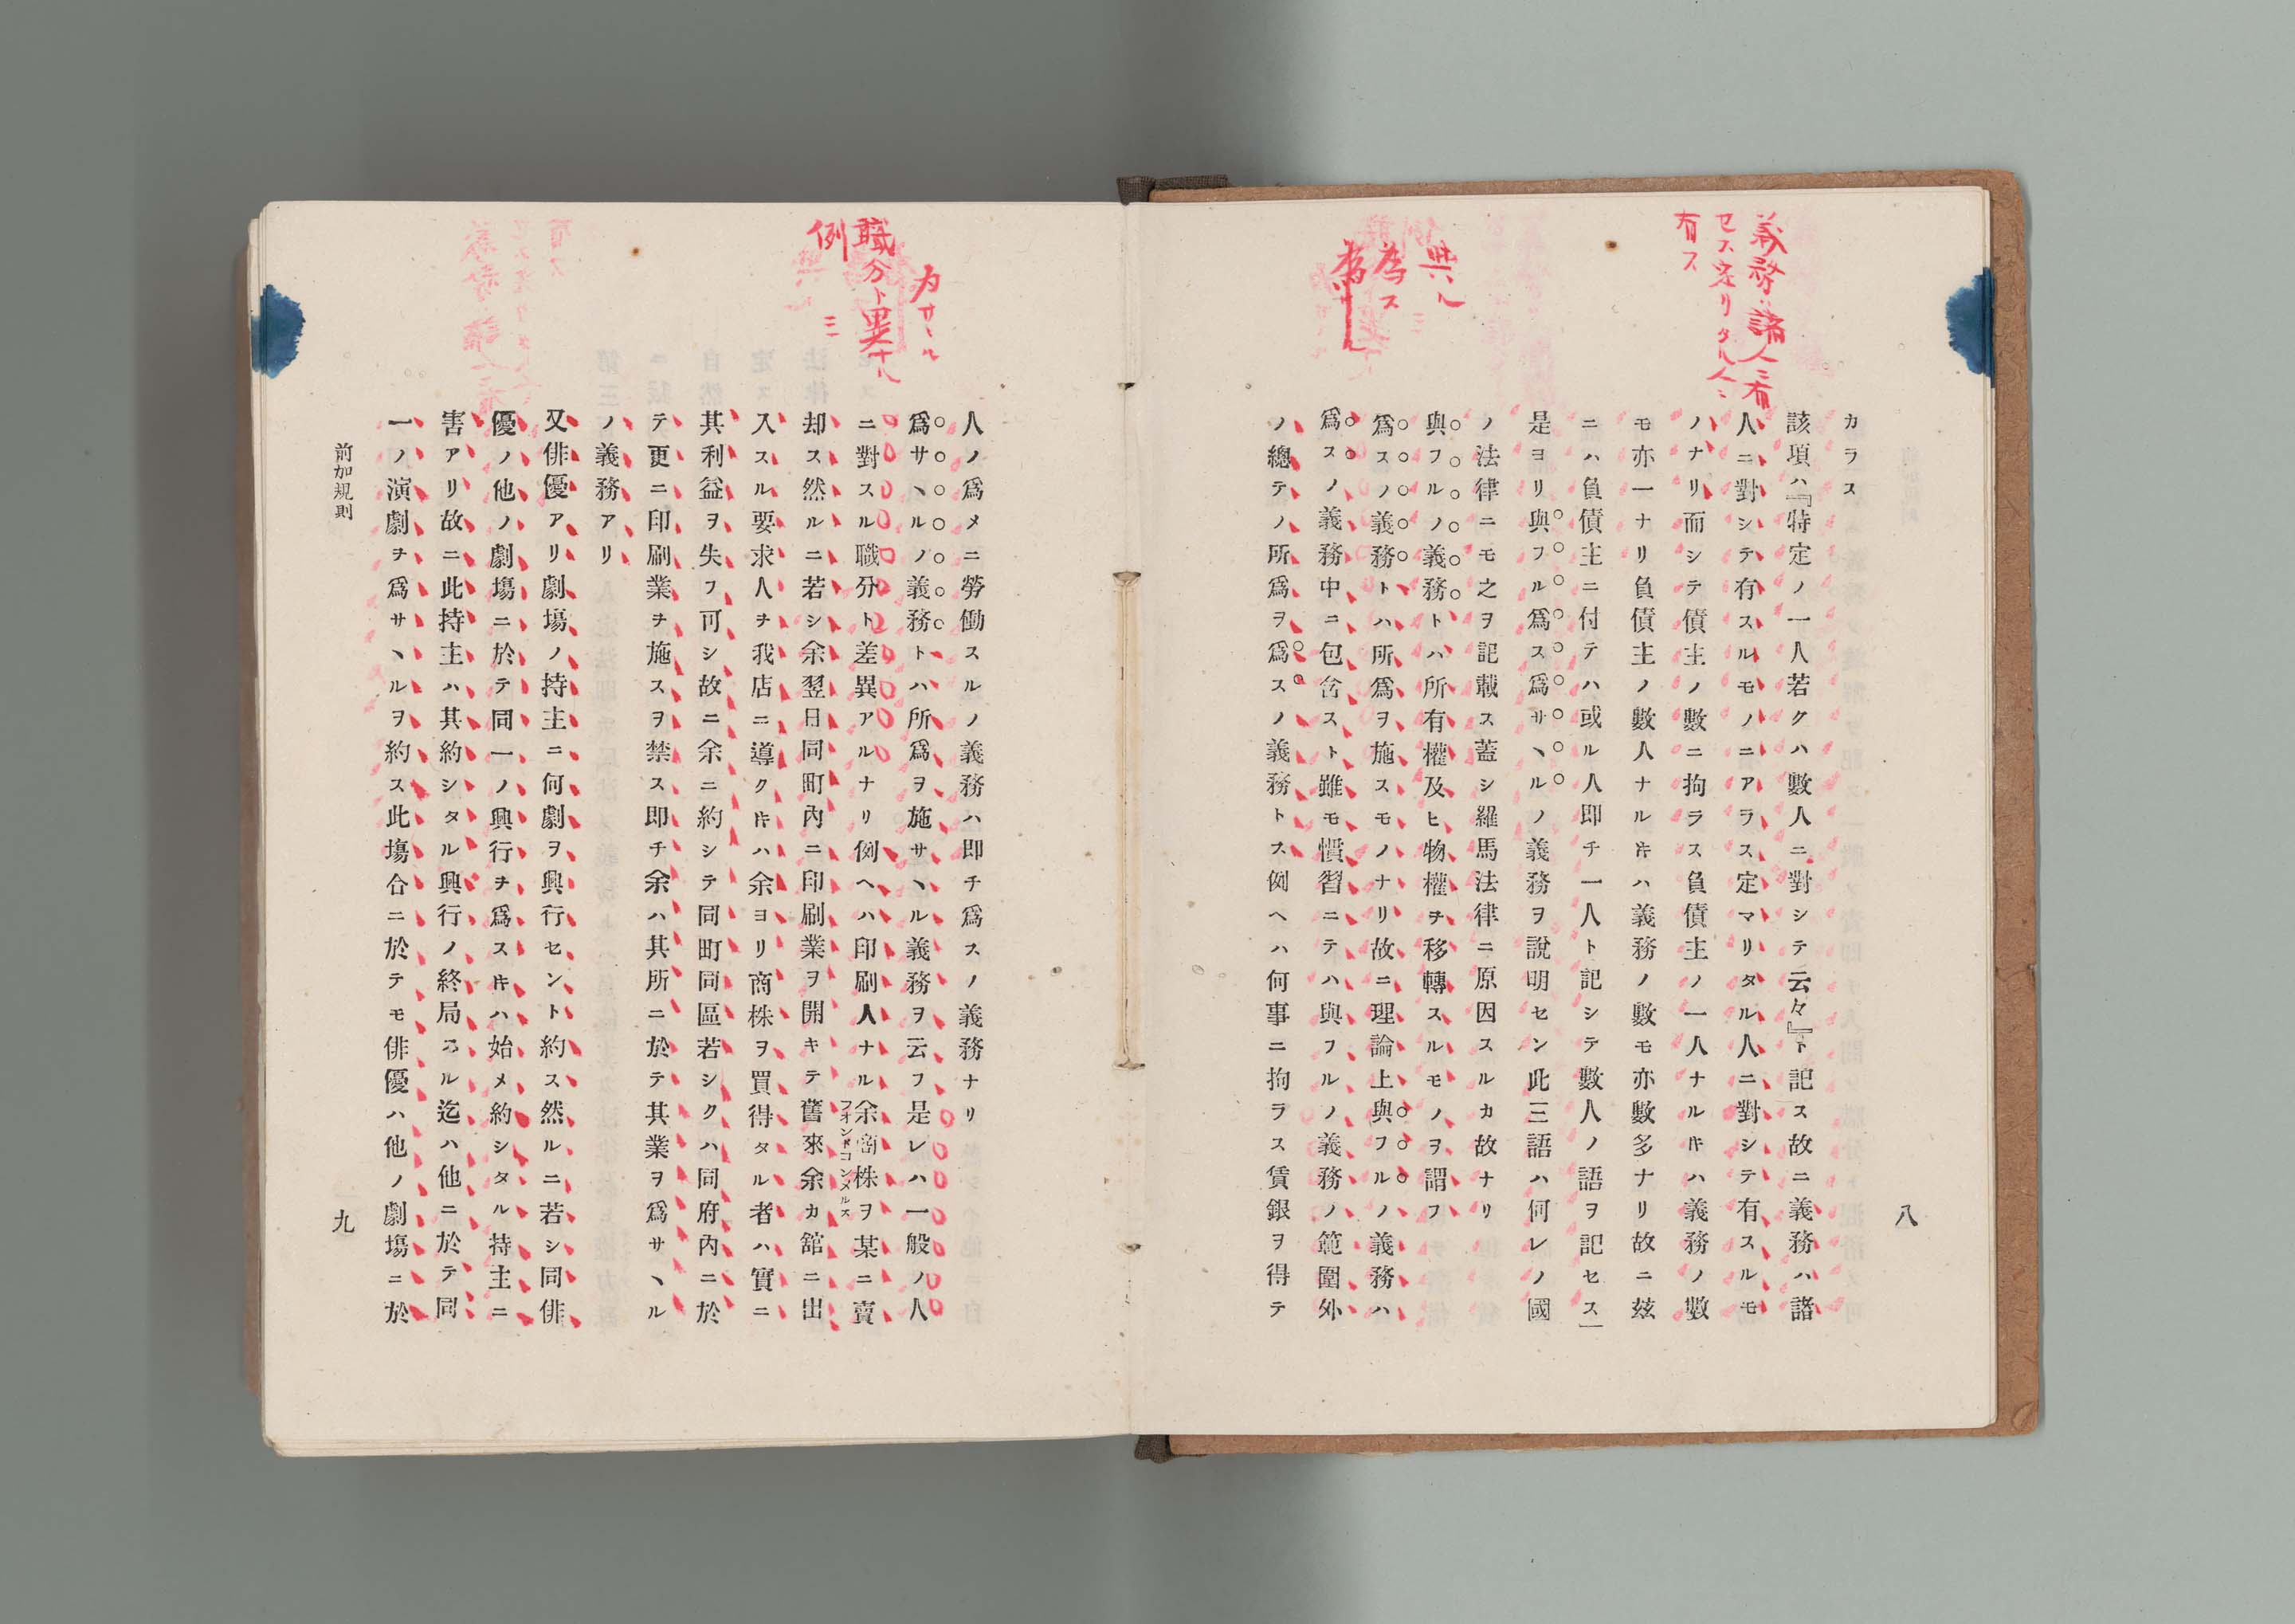 義務ハ諸人ニ有
セス定リタル人ニ
有ス
與ル
為ス
八
カラス
該項ハ『特定ノ一人若クハ數人ニ對シテ云々』ト記ス故ニ義務ハ諸
人ニ對シテ有スルモノニアラス定マリタル人ニ對シテ有スルモ
ノナリ而シテ債主ノ數ニ拘ラス負債主ノ一人ナルキハ義務ノ數
モ亦一ナリ負債主ノ數人ナルキハ義務ノ數モ亦數多ナリ故ニ玆
ニハ負債主ニ付テハ或ル人即チ一人ト記シテ數人ノ語ヲ記セス」
是ヨリ與フル爲ス爲サヽルノ義務ヲ說明セン此三語ハ何レノ國
ノ法律ニモ之ヲ記載ス蓋シ羅馬法律ニ原因スルカ故ナリ
與フルノ義務トハ所有權及ヒ物權ヲ移轉スルモノヲ謂フ
爲スノ義務トハ所爲ヲ施スモノナリ故ニ理論上與フルノ義務ハ
爲スノ義務中ニ包含スト雖モ慣習ニテハ與フルノ義務ノ範圍外
ノ總テノ所爲ヲ爲スノ義務トス例ヘハ何事ニ拘ラス賃銀ヲ得テ
為サヽル
職分ト異ナル
例
三
人ノ爲メニ勞働スルノ義務ハ即チ爲スノ義務ナリ
爲サヽルノ義務トハ所爲ヲ施サヽル義務ヲ云フ是レハ一般ノ人
ニ對スル職分ト差異アルナリ例ヘハ印刷人ナル余商株ヲ某ニ賣
フオントコンメルス
却ス然ルニ若シ余翌日同町內ニ印刷業ヲ開キテ舊來余カ舘ニ出
入スル要求人ヲ我店ニ導クキハ余ヨリ商株ヲ買得タル者ハ實ニ
其利益ヲ失フ可シ故ニ余ニ約シテ同町同區若シクハ同府內ニ於
テ更ニ印刷業ヲ施スヲ禁ス即チ余ハ其所ニ於テ其業ヲ爲サヽル
ノ義務アリ
又俳優アリ劇塲ノ持主ニ何劇ヲ興行セント約ス然ルニ若シ同俳
優ノ他ノ劇塲ニ於テ同一ノ興行ヲ爲スキハ始メ約シタル持主ニ
害アリ故ニ此持主ハ其約シタル興行ノ終局スル迄ハ他ニ於テ同
一ノ演劇ヲ爲サヽルヲ約ス此塲合ニ於テモ俳優ハ他ノ劇塲ニ於
前加規則
九